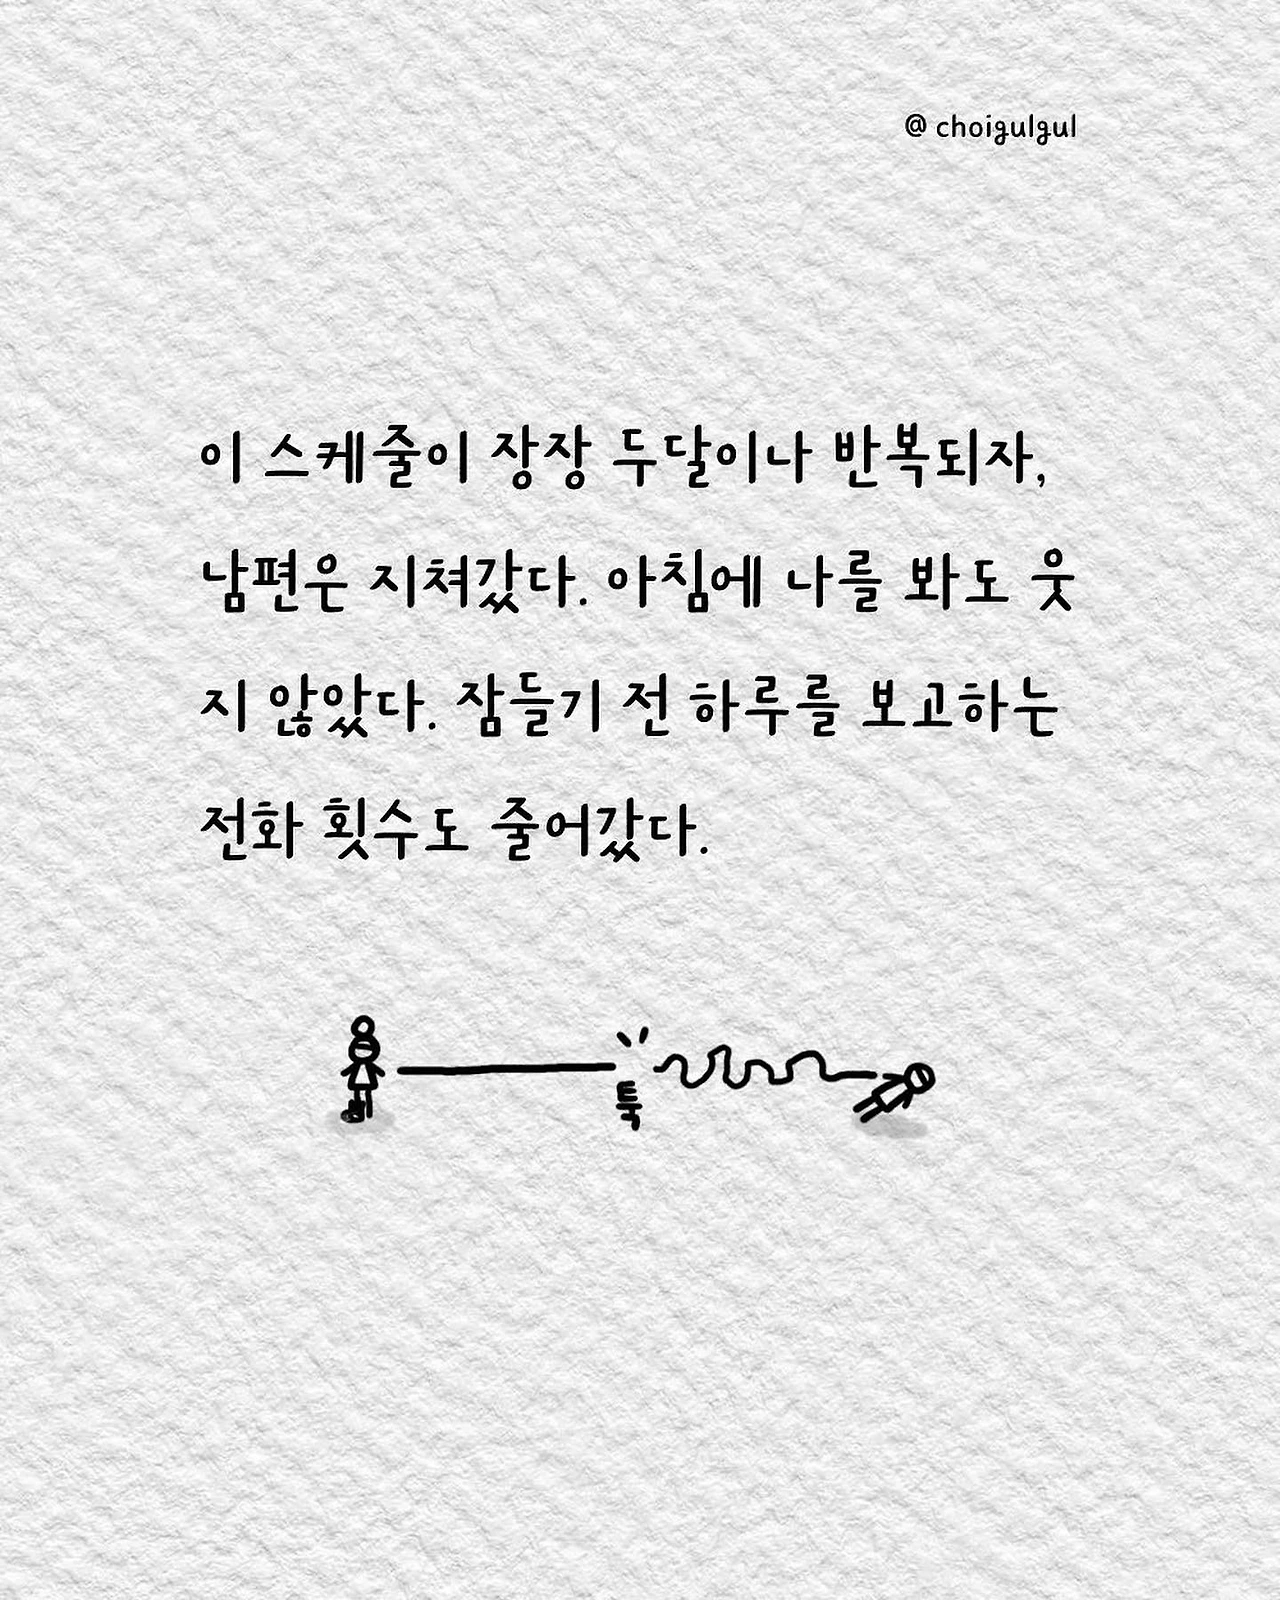 @ choigulgul
이 스케줄이 장장 두달이나 반복되자,
남편은 지쳐갔다. 아침에 나를 봐도 웃
지 않았다. 잠들기 전 하루를 보고하는
전화 횟수도 줄어갔다.
툭